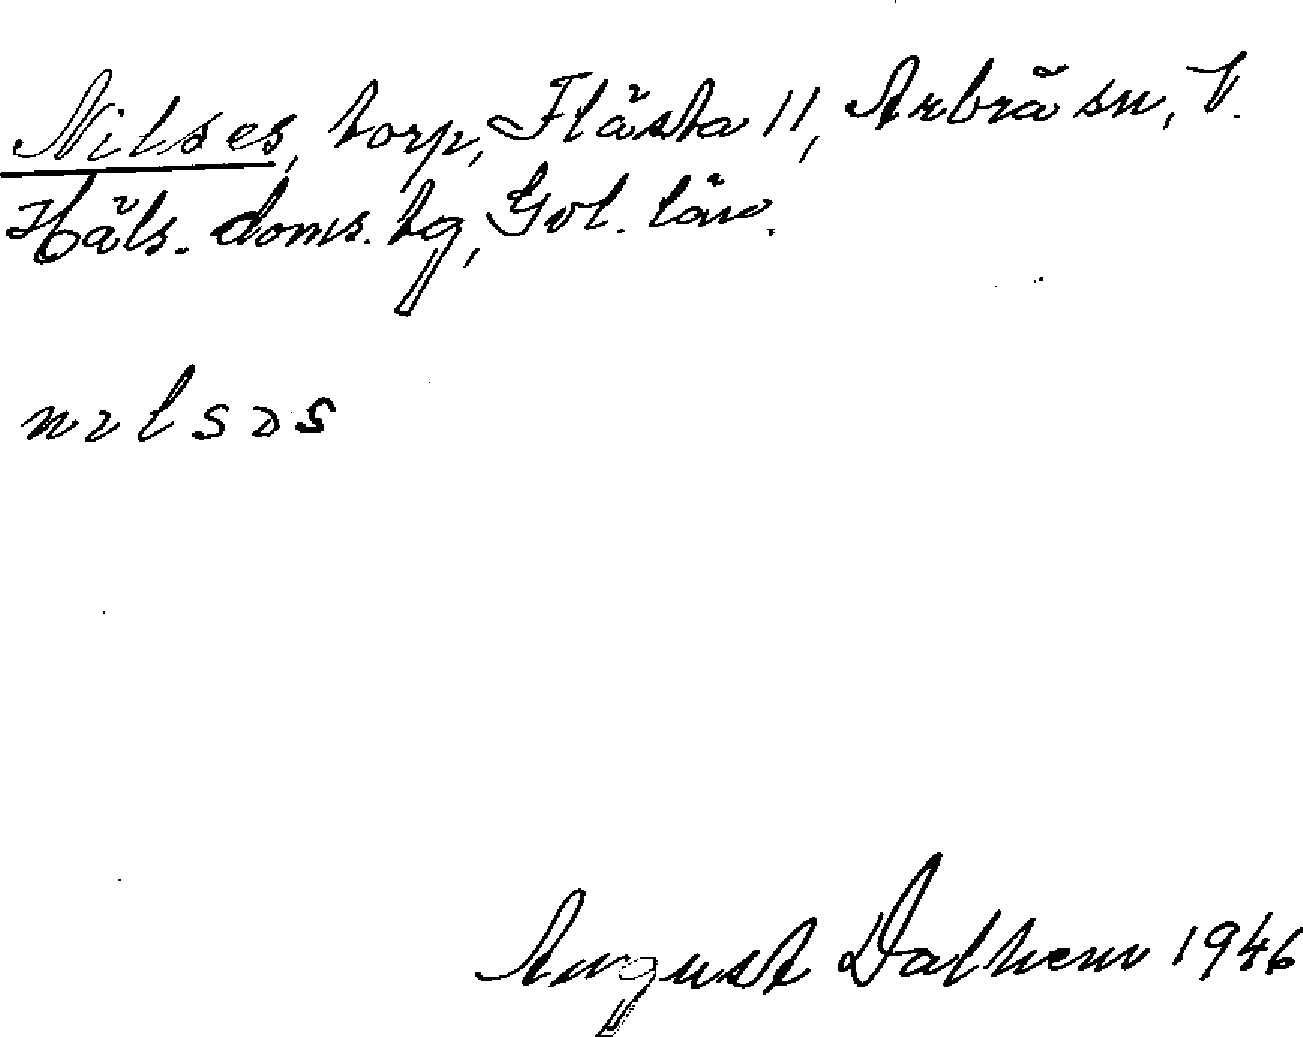 Nilses, torp, Flästa 11, Arbrå sn, V.
Häls. doms. tg, Gvl. län.
nılsəs
August Dalhem 1946